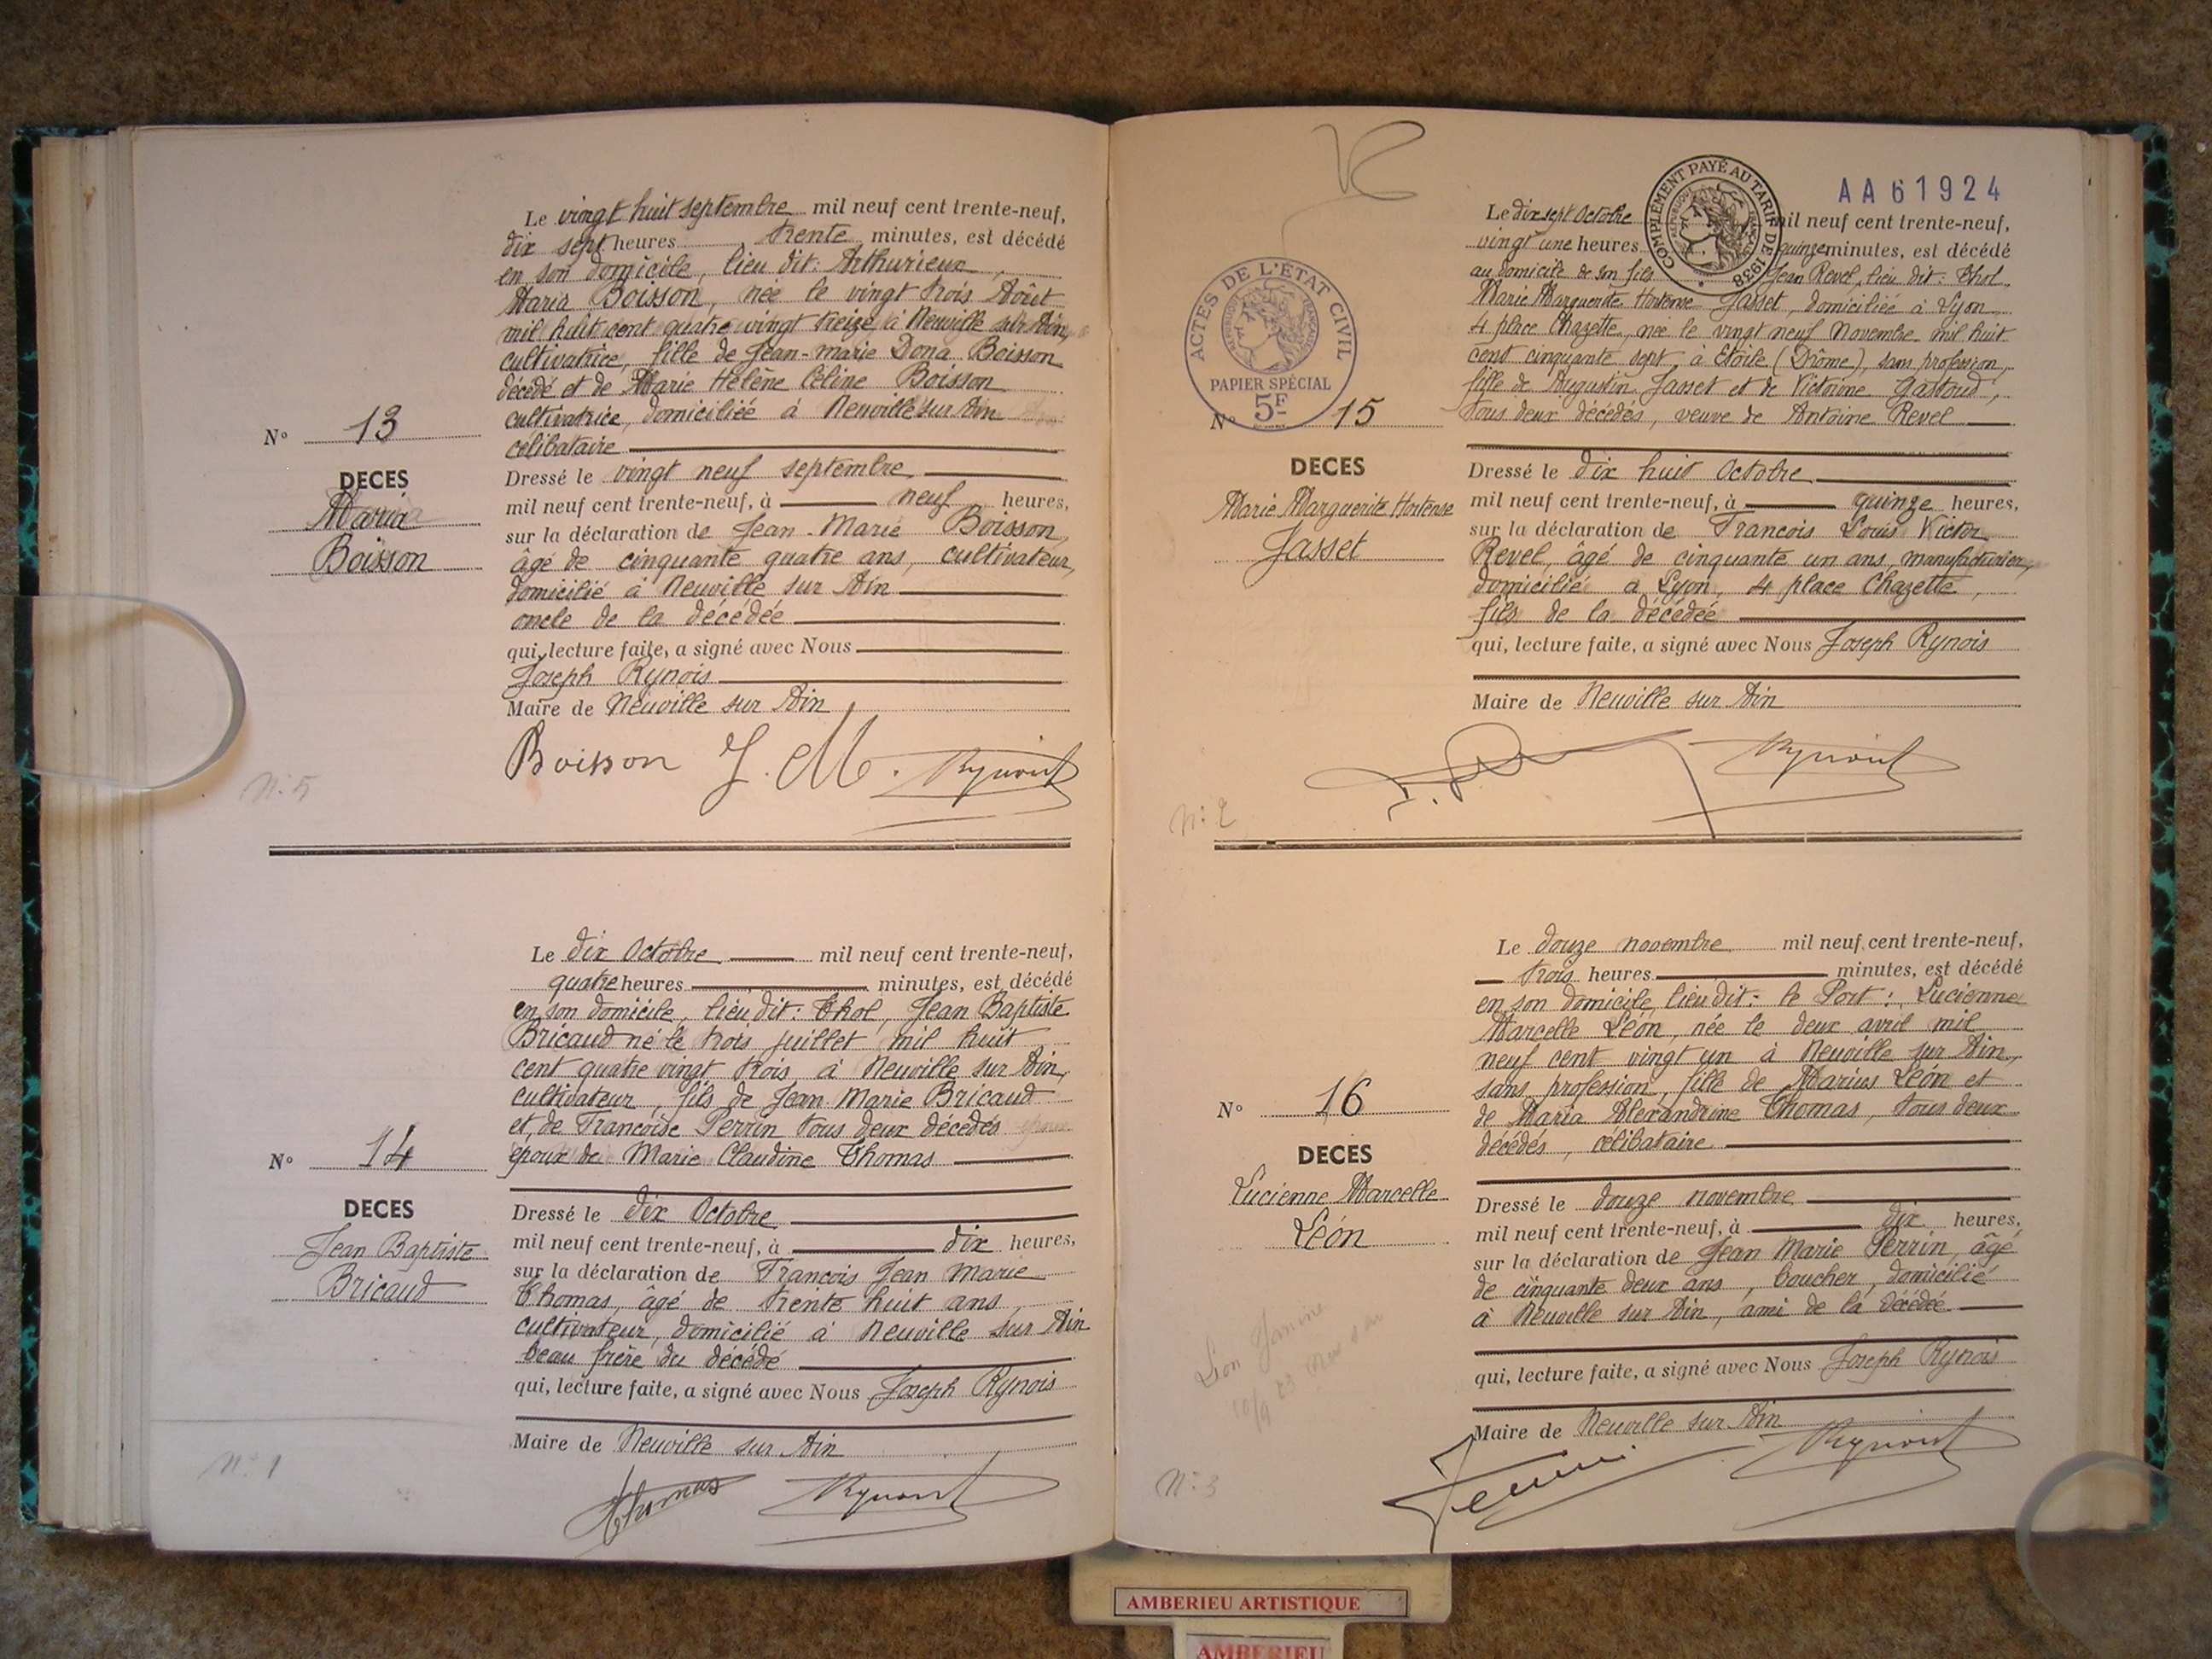 Le vingt huit septembre mil neuf cent trente-neuf,
dix sept heures trente minutes, est décédé
en son domicile, lieu dit: Arthurieux,
Maria Boisson, née le vingt trois Août
mil huit cent quatre vingt treize à Neuville sur Ain,
cultivatrice, fille de Jean-marie Dona Boisson
décédé et de Marie Hélène Céline Boisson
cultivatrice, domiciliée à Neuville sur Ain
célibataire
N° 13
DECES
Maria
Boisson
Dressé le vingt neuf septembre
mil neuf cent trente-neuf, à neuf heures,
sur la déclaration de Jean-Marie Boisson,
âgé de cinquante quatre ans, cultivateur,
domicilié à Neuville sur Ain
oncle de la décédée
qui, lecture faite, a signé avec Nous
Joseph Rynois
Maire de Neuville sur Ain
Boisson J. M. Rynois
N: 5
Le dix Octobre mil neuf cent trente-neuf,
quatre heures minutes, est décédé
en son domicile, lieu dit: Thol, Jean Baptiste
Bricaud né le trois juillet mil huit
cent quatre vingt trois à Neuville sur Ain,
cultivateur, fils de Jean Marie Bricaud
et, de Francoise Perrin tous deux décédés
époux de Marie Claudine Thomas
N° 14
DECES
Jean Baptiste
Bricaud
Dressé le dix Octobre
mil neuf cent trente-neuf, à dix heures,
sur la déclaration de Francois Jean Marie
Thomas, âgé de trente huit ans,
cultivateur, domicilié à Neuville sur Ain
beau frère du décédé
qui, lecture faite, a signé avec Nous Joseph Rynois
Maire de Neuville sur Ain
N: 1
Thomas Rynois
AA61924
COMPLÉMENT PAYÉ AU TARIF DE 1938
Le dix sept Octobre mil neuf cent trente-neuf,
vingt une heures quinze minutes, est décédé
au domicile de son fils Jean Revel, lieu dit: Thol,
Marie Marguerite Hortense Jasset, domiciliée à Lyon
4 place Chazette, née le vingt neuf Novembre mil huit
cent cinquante sept à Etoile (Drôme), sans profession,
fille de Augustin Jasset et de Victorine Gastoud,
tous deux décédés, veuve de Antoine Revel
ACTES DE L'ÉTAT CIVIL
PAPIER SPÉCIAL
5F
N° 15
DECES
Marie Marguerite Hortense
Jasset
Dressé le dix huit Octobre
mil neuf cent trente-neuf, à quinze heures,
sur la déclaration de Francois Louis Victor
Revel, âgé de cinquante un ans, manufacturier,
domicilié à Lyon, 4 place Chazette,
fils de la décédée
qui, lecture faite, a signé avec Nous Joseph Rynois
Maire de Neuville sur Ain
Rynois
N: 2
Le douze novembre mil neuf cent trente-neuf,
trois heures minutes, est décédé
en son domicile, lieu dit: le Port: Lucienne
Marcelle Léon, née le deux avril mil
neuf cent vingt un à Neuville sur Ain,
sans profession, fille de Marius Léon et
de Maria Alexandrine Thomas, tous deux
décédés, célibataire
N° 16
DECES
Lucienne Marcelle
Léon
Dressé le douze novembre
mil neuf cent trente-neuf, à dix heures,
sur la déclaration de Jean Marie Perrin, âgé
de cinquante deux ans, boucher, domicilié
à Neuville sur Ain, ami de la décédée
qui, lecture faite, a signé avec Nous Joseph Rynois
Maire de Neuville sur Ain
Léon Janine
N: 3
Perrin Rynois
AMBERIEU ARTISTIQUE
AMBERIEU